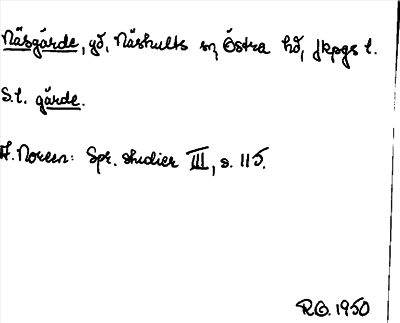 Näsgärde, gd, Näshults sn, Östra hd, Jkpgs l.
S.l. gärde.
A. Noreen: Spr. studier III, s. 115.
R.G. 1950